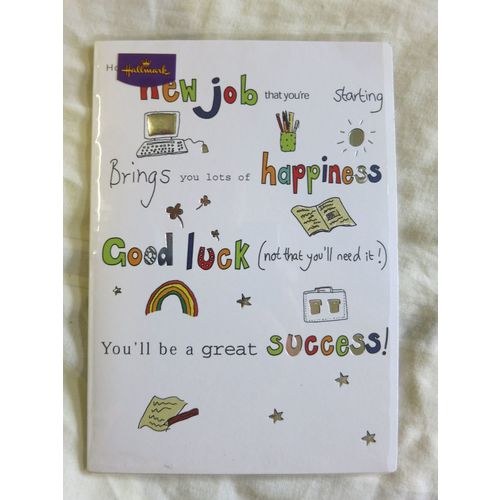 Hallmark
new job that you're starting
Brings you lots of happiness
Good luck (not that you'll need it!)
You'll be a great success!